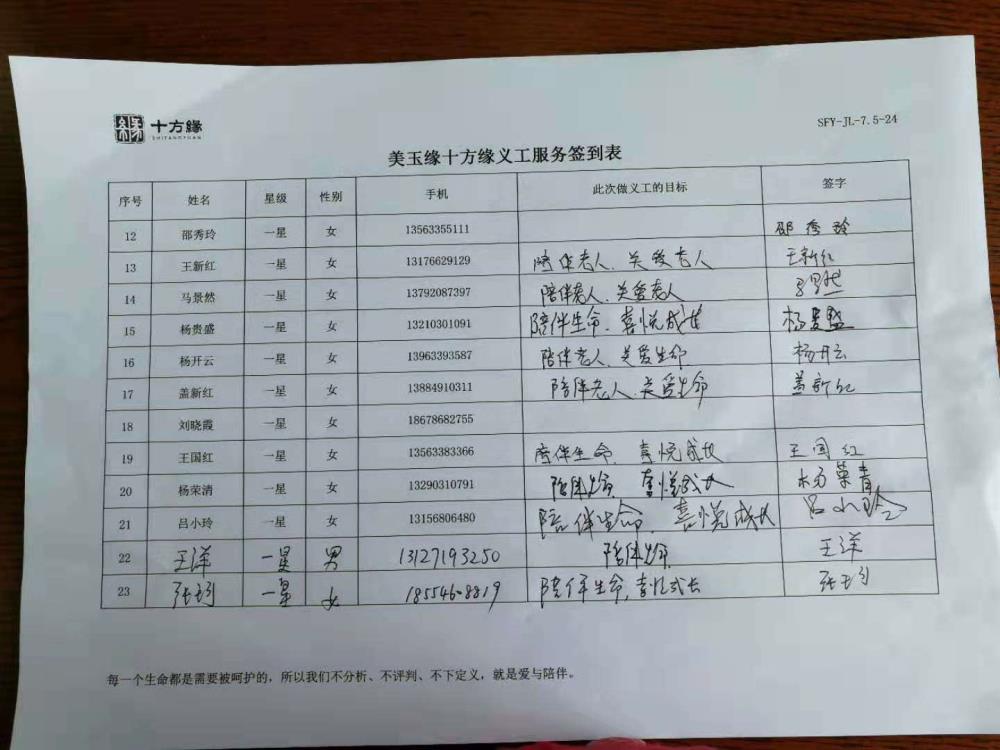 十方缘
SHIFANGYUAN
SFY-JL-7.5-24
美玉缘十方缘义工服务签到表
序号 姓名 星级 性别 手机 此次做义工的目标 签字
12 邵秀玲 一星 女 13563355111 邵秀玲
13 王新红 一星 女 13176629129 陪伴老人、关爱老人 王新红
14 马景然 一星 女 13792087397 陪伴老人、关爱老人
15 杨贵盛 一星 女 13210301091 陪伴生命、喜悦成长 杨贵盛
16 杨开云 一星 女 13963393587 陪伴老人、关爱生命 杨开云
17 盖新红 一星 女 13884910311 陪伴老人、关爱生命 盖新红
18 刘晓霞 一星 女 18678682755
19 王国红 一星 女 13563383366 陪伴生命、喜悦成长 王国红
20 杨荣清 一星 女 13290310791 陪伴生命 喜悦成长 杨荣清
21 吕小玲 一星 女 13156806480 陪伴生命、喜悦成长 吕小玲
22 王洋 一星 男 13127193250 陪伴生命 王洋
23 张 一星 女 18554608819 陪伴生命,喜悦成长 张
每一个生命都是需要被呵护的，所以我们不分析、不评判、不下定义，就是爱与陪伴。